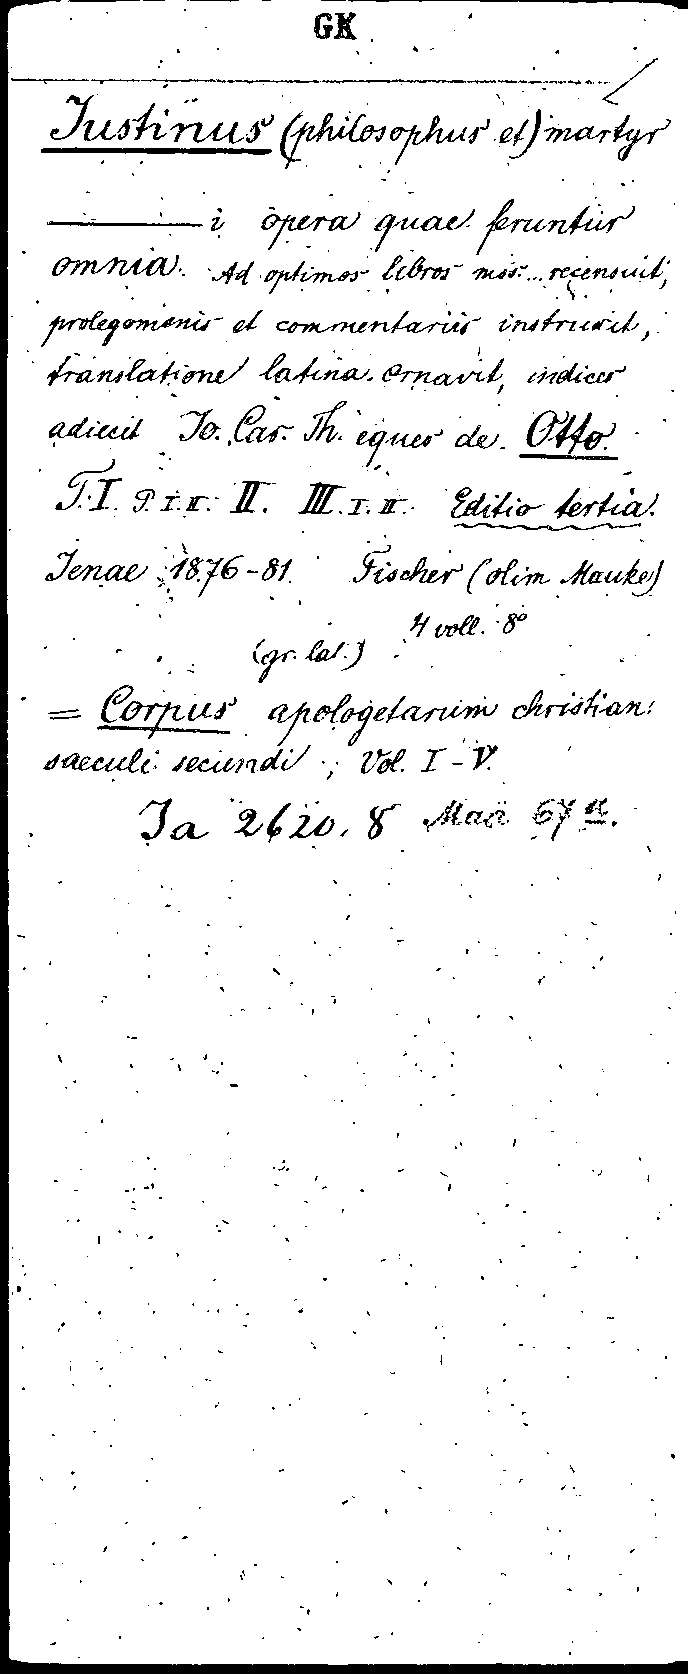 GK
Iustinus (philosophus et) martyr
——— i opera quae feruntur
omnia. Ad optimos libros mss. recensuit,
prolegomenis et commentariis instruxit,
translatione latina ornavit, indices
adiecit Io. Car. Th. eques de Otto.
T. I. P. I. II. II. III. I. II. Editio tertia.
Jenae 1876-81. Fischer (olim Mauke)
4 voll. 8°
(gr. lat.)
= Corpus apologetarum christian:
saeculi secundi; Vol. I-V.
Ia 2620. 8 67 a.